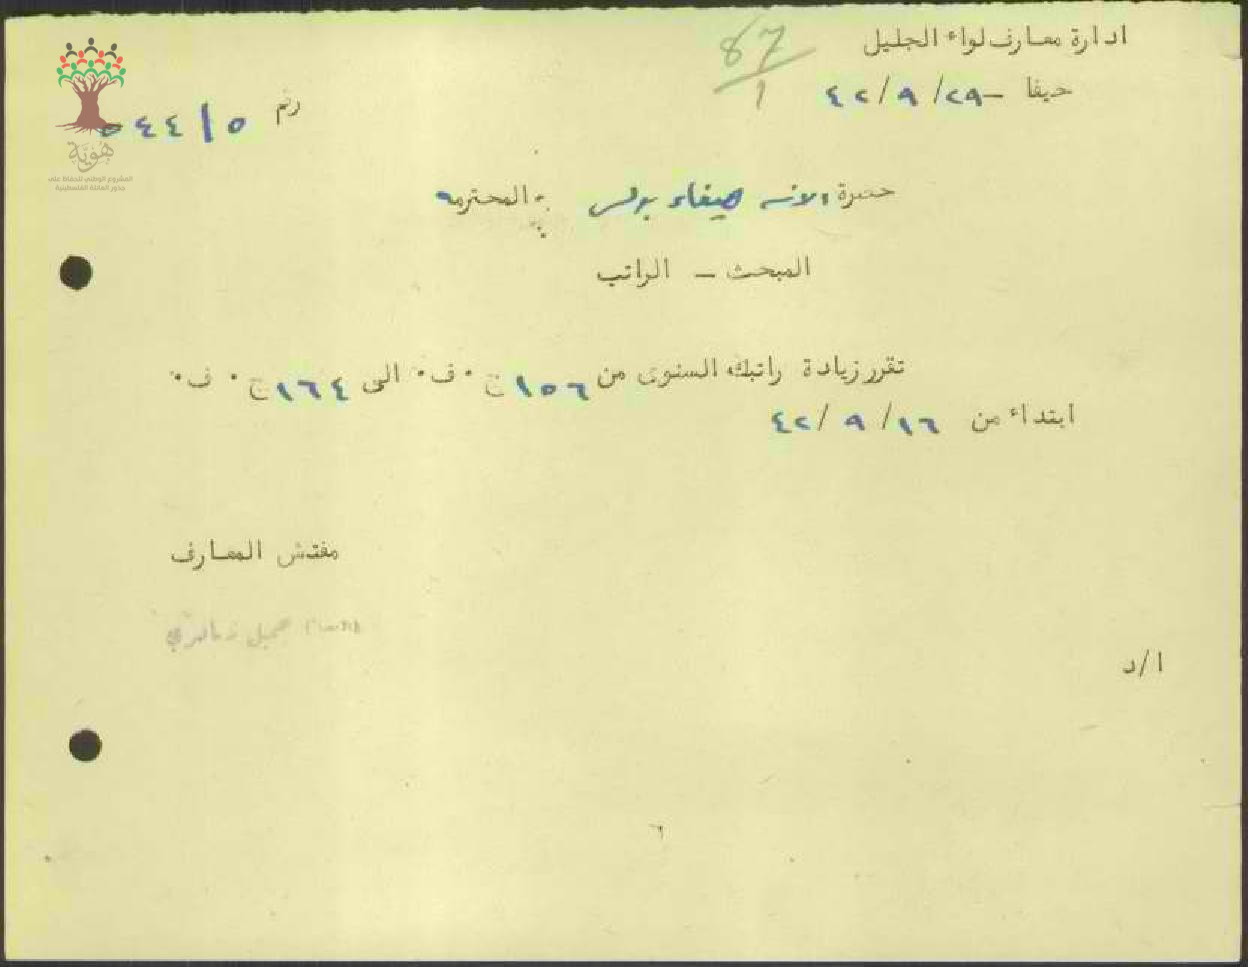 ادارة معارف لواء الجليل
87
1
حيفا - ٢٩/ ٩ /٤٢
رقم ٥ / ٥٤٤
هوية
المشروع الوطني للحفاظ على
جذور العائلة الفلسطينية
حضرة الانسه هيفاء بولس المحترمه
المبحث - الراتب
تقرر زيادة راتبك السنوى من ١٥٦ ج ٠ ف ٠ الى ١٦٤ ج ٠ ف ٠
ابتداء من ١٦/ ٩ /٤٢
مفتش المعارف
جميل
ا/د